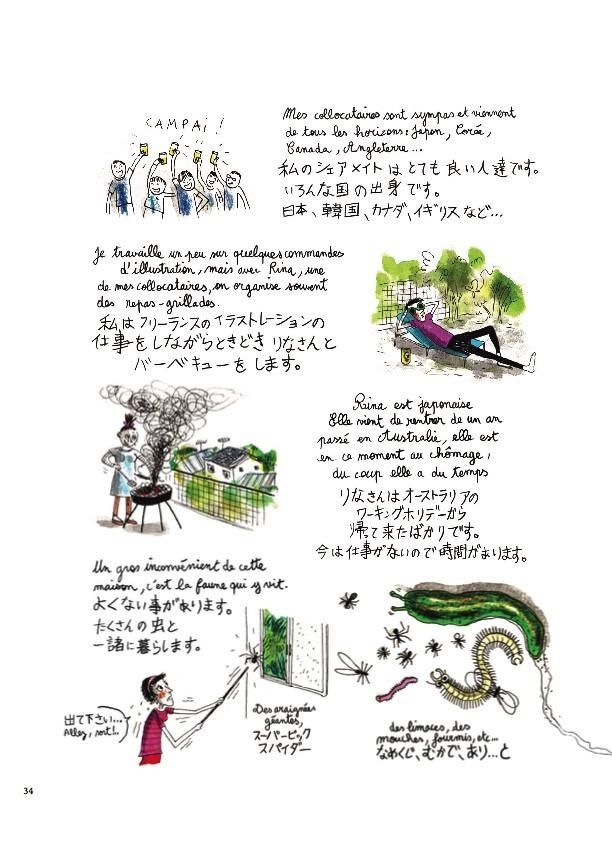 CAMPAI !
Mes collocataires sont sympas et viennent
de tous les horizons : Japon, Corée,
Canada, Angleterre...
私のシェアメイトはとても良い人達です。
いろんな国の出身です。
日本、韓国、カナダ、イギリスなど...
Je travaille un peu sur quelques commandes
d'illustration, mais avec Rina, une
de mes collocataires, on organise souvent
des repas-grillades.
私はフリーランスのイラストレーションの
仕事をしながらときどきりなさんと
バーベキューをします。
Rina est japonaise
Elle vient de rentrer de un an
passé en Australie, elle est
en ce moment au chômage,
du coup elle a du temps
りなさんはオーストラリアの
ワーキングホリデーから
帰て来たばかりです。
今は仕事がないので時間があります。
Un gros inconvénient de cette
maison, c'est la faune qui y vit.
よくない事があります。
たくさんの虫と
一諸に暮らします。
出て下さい...
Allez, sort !..
Des araignées
géantes,
スーパービック
スパイダー
des limaces, des
mouches, fourmis, etc...
なめくじ、むかで、あり...と
34